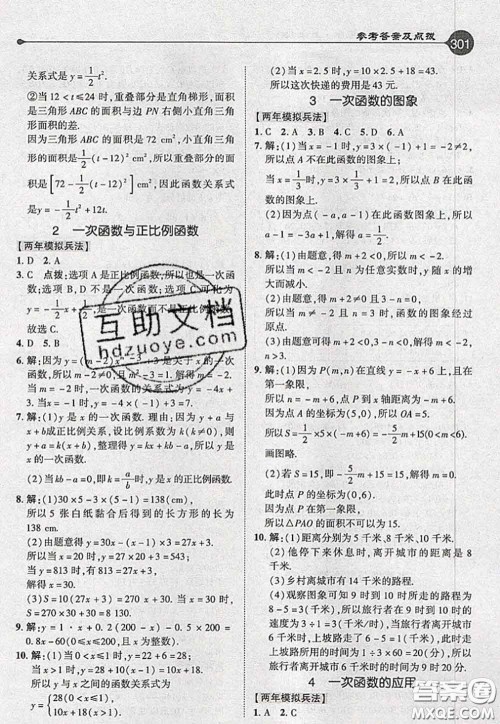 参考答案及点拨
301
关系式是y=1/2t².
②当12<t≤24时,重叠部分是直角梯形,面积
是三角形ABC的面积与边PN右侧小直角三角
形面积的差.
三角形ABC的面积是72 cm²,小直角三角形面
积是1/2(t-12)² cm²,所以重叠部分的面积
是[72-1/2(t-12)²]cm²,因此函数关系式
是y=-1/2t²+12t.
2 一次函数与正比例函数
【两年模拟兵法】
1. D 2. A
3. C 点拨:选项A是正比例函数,所以也是一次
函数;选项B、D是一次函数;选项C可化为
故选C.
4. D 5. B
6. 解:因为y=(m-2)x
数,所以m-2≠0且m²-3=1.解得m=-2.
因此,一次函数的关系式为y=-4x+
3.
7. 解:(1)y是x的一次函数.理由:因为y+a与
x+b成正比例关系,设比例系数为k(k≠0),则
y+a=k(x+b),整理得y=kx+kb-a,
所以y是x的一次函数.
(2)当kb-a=0,即k=a/b时,y是x的正比例函
数.
8. 解:(1)30×5-3×(5-1)=138(cm),
所以5张白纸黏合后得到的长方形的长为
138 cm.
(2)由题意得y=30x-(x-1)×3=27x+3.
所以当x=273时,273=27x+3.
解得x=10.
(3)S=10(27x+3)=270x+30,当x=1时,
S=270×1+30=300.
9. 解:y=30x+500-(2x+20)×1-20x×
0.8-60(0≤x≤200,且x为整数).
10. 解:(1)当0<x≤1时,y=22+6=28;当x>1
时,y=28+10(x-1)=10x+18.
所以y与x之间的函数关系式为
y={28(0<x≤1),
10x+18(x>1).
(2)当x=2.5时,y=10×2.5+18=43.
所以这次快递的费用是43元.
3 一次函数的图象
【两年模拟兵法】
1. C 2. A 3. B 4. D 5. C 6. A
7. 解:(1)当x=-1时,y=3×(-1)+1=-2,所
以点A不在此函数的图象上;
当x=1/3时,y=3×1/3+1=2,所以点B在此函
数的图象上.
(2)因为点(-a,-a)在此函数图象上,所以
-a=-3a+1,解得a=1/2.
8. 解:(1)由题意,得m+2<0,所以m<-2.
所以当m<-2,n为任意实数时,y随x的增
大而减小.
(2)由题意,得m+2≠0且3-n=0,所以当
m≠-2且n=3时,函数图象经过原点.
(3)由题意得m+2<0,3-n<0,所以m<-2,
n>3.
9. 解:(1)因为P(m,n)在直线y=-x+6上,且在
第一象限,
所以n=-m+6,点P到x轴距离为-m+6.
因为点A的坐标为(5,0),所以OA=5.
所以S=1/2×5×(-m+6)=-5/2m+15(0<m<6).
画图略.
(2)若S=15,即-5/2m+15=15,解得m=0.
此时点P的坐标为(0,6),不在第一象限.
所以△PAO的面积不可以为15.
10. 解:(1)离开城市的距离是8千米.
(2)他停下来休息时,离开城市的距离是6千
米.
(3)乡村离城市有14千米的路程.
(4)观察图象可知旅行者在行到8千米的
8-5=3(千米/时),所以旅行者在行
上坡路走了5-1=4(小时).下坡行
为(14-8)÷(8-6)=3(千米/时).
4 一次函数的应用
【两年模拟兵法】
1. A 2. C
互助文档
hdzuoye.com
答案圈
MXQE.COM